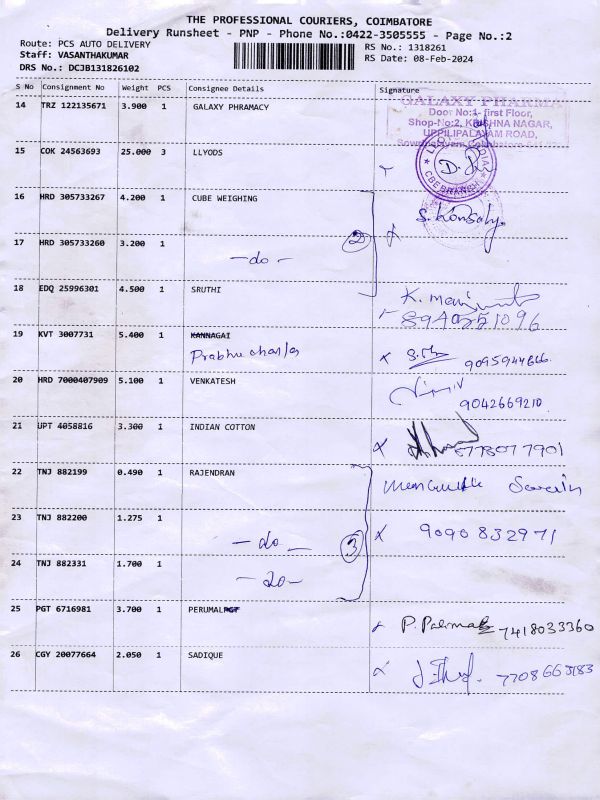 THE PROFESSIONAL COURIERS, COIMBATORE
Delivery Runsheet - PNP - Phone No.:0422-3505555 - Page No.:2
Route: PCS AUTO DELIVERY
RS No.: 1318261
Staff: VASANTHAKUMAR
RS Date: 08-Feb-2024
DRS No.: DCJB131826102
S No Consignment No Weight PCS Consignee Details Signature
14 TRZ 122135671 3.900 1 GALAXY PHRAMACY
GALAXY PHARMA
Door No:1- first Floor,
Shop-No:2, KRISHNA NAGAR,
UPPILIPALAYAM ROAD,
15 COK 24563693 25.000 3 LLYODS
CBE BRANCH
16 HRD 305733267 4.200 1 CUBE WEIGHING
2
17 HRD 305733260 3.200 1
-do-
18 EDQ 25996301 4.500 1 SRUTHI
8940251096
19 KVT 3007731 5.400 1 KANNAGAI
Prabhu
9095944666
20 HRD 7000407909 5.100 1 VENKATESH
9042669210
21 UPT 4058816 3.300 1 INDIAN COTTON
22 TNJ 882199 0.490 1 RAJENDRAN
23 TNJ 882200 1.275 1
-do-
3
9090832971
24 TNJ 882331 1.700 1
-do-
25 PGT 6716981 3.700 1 PERUMALPGT
7418033360
26 CGY 20077664 2.050 1 SADIQUE
7708663183